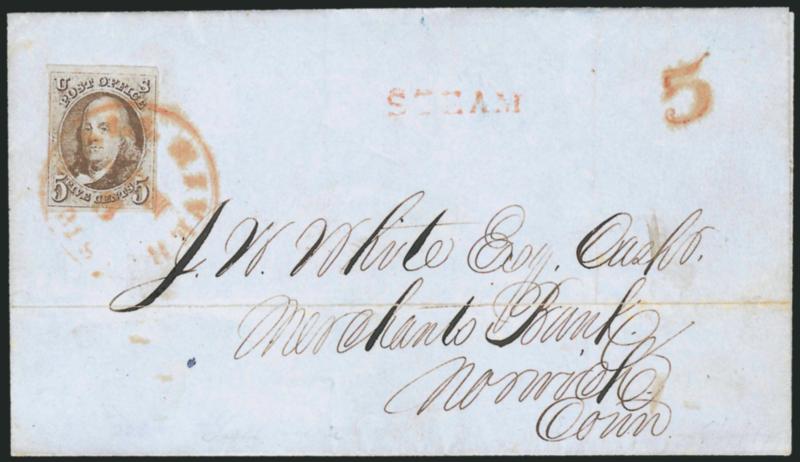 U S
POST OFFICE
5 FIVE CENTS. 5
STEAM
5
RIVER
J. W. White Esq. Cashr.
Merchants Bank.
Norwich.
Conn.